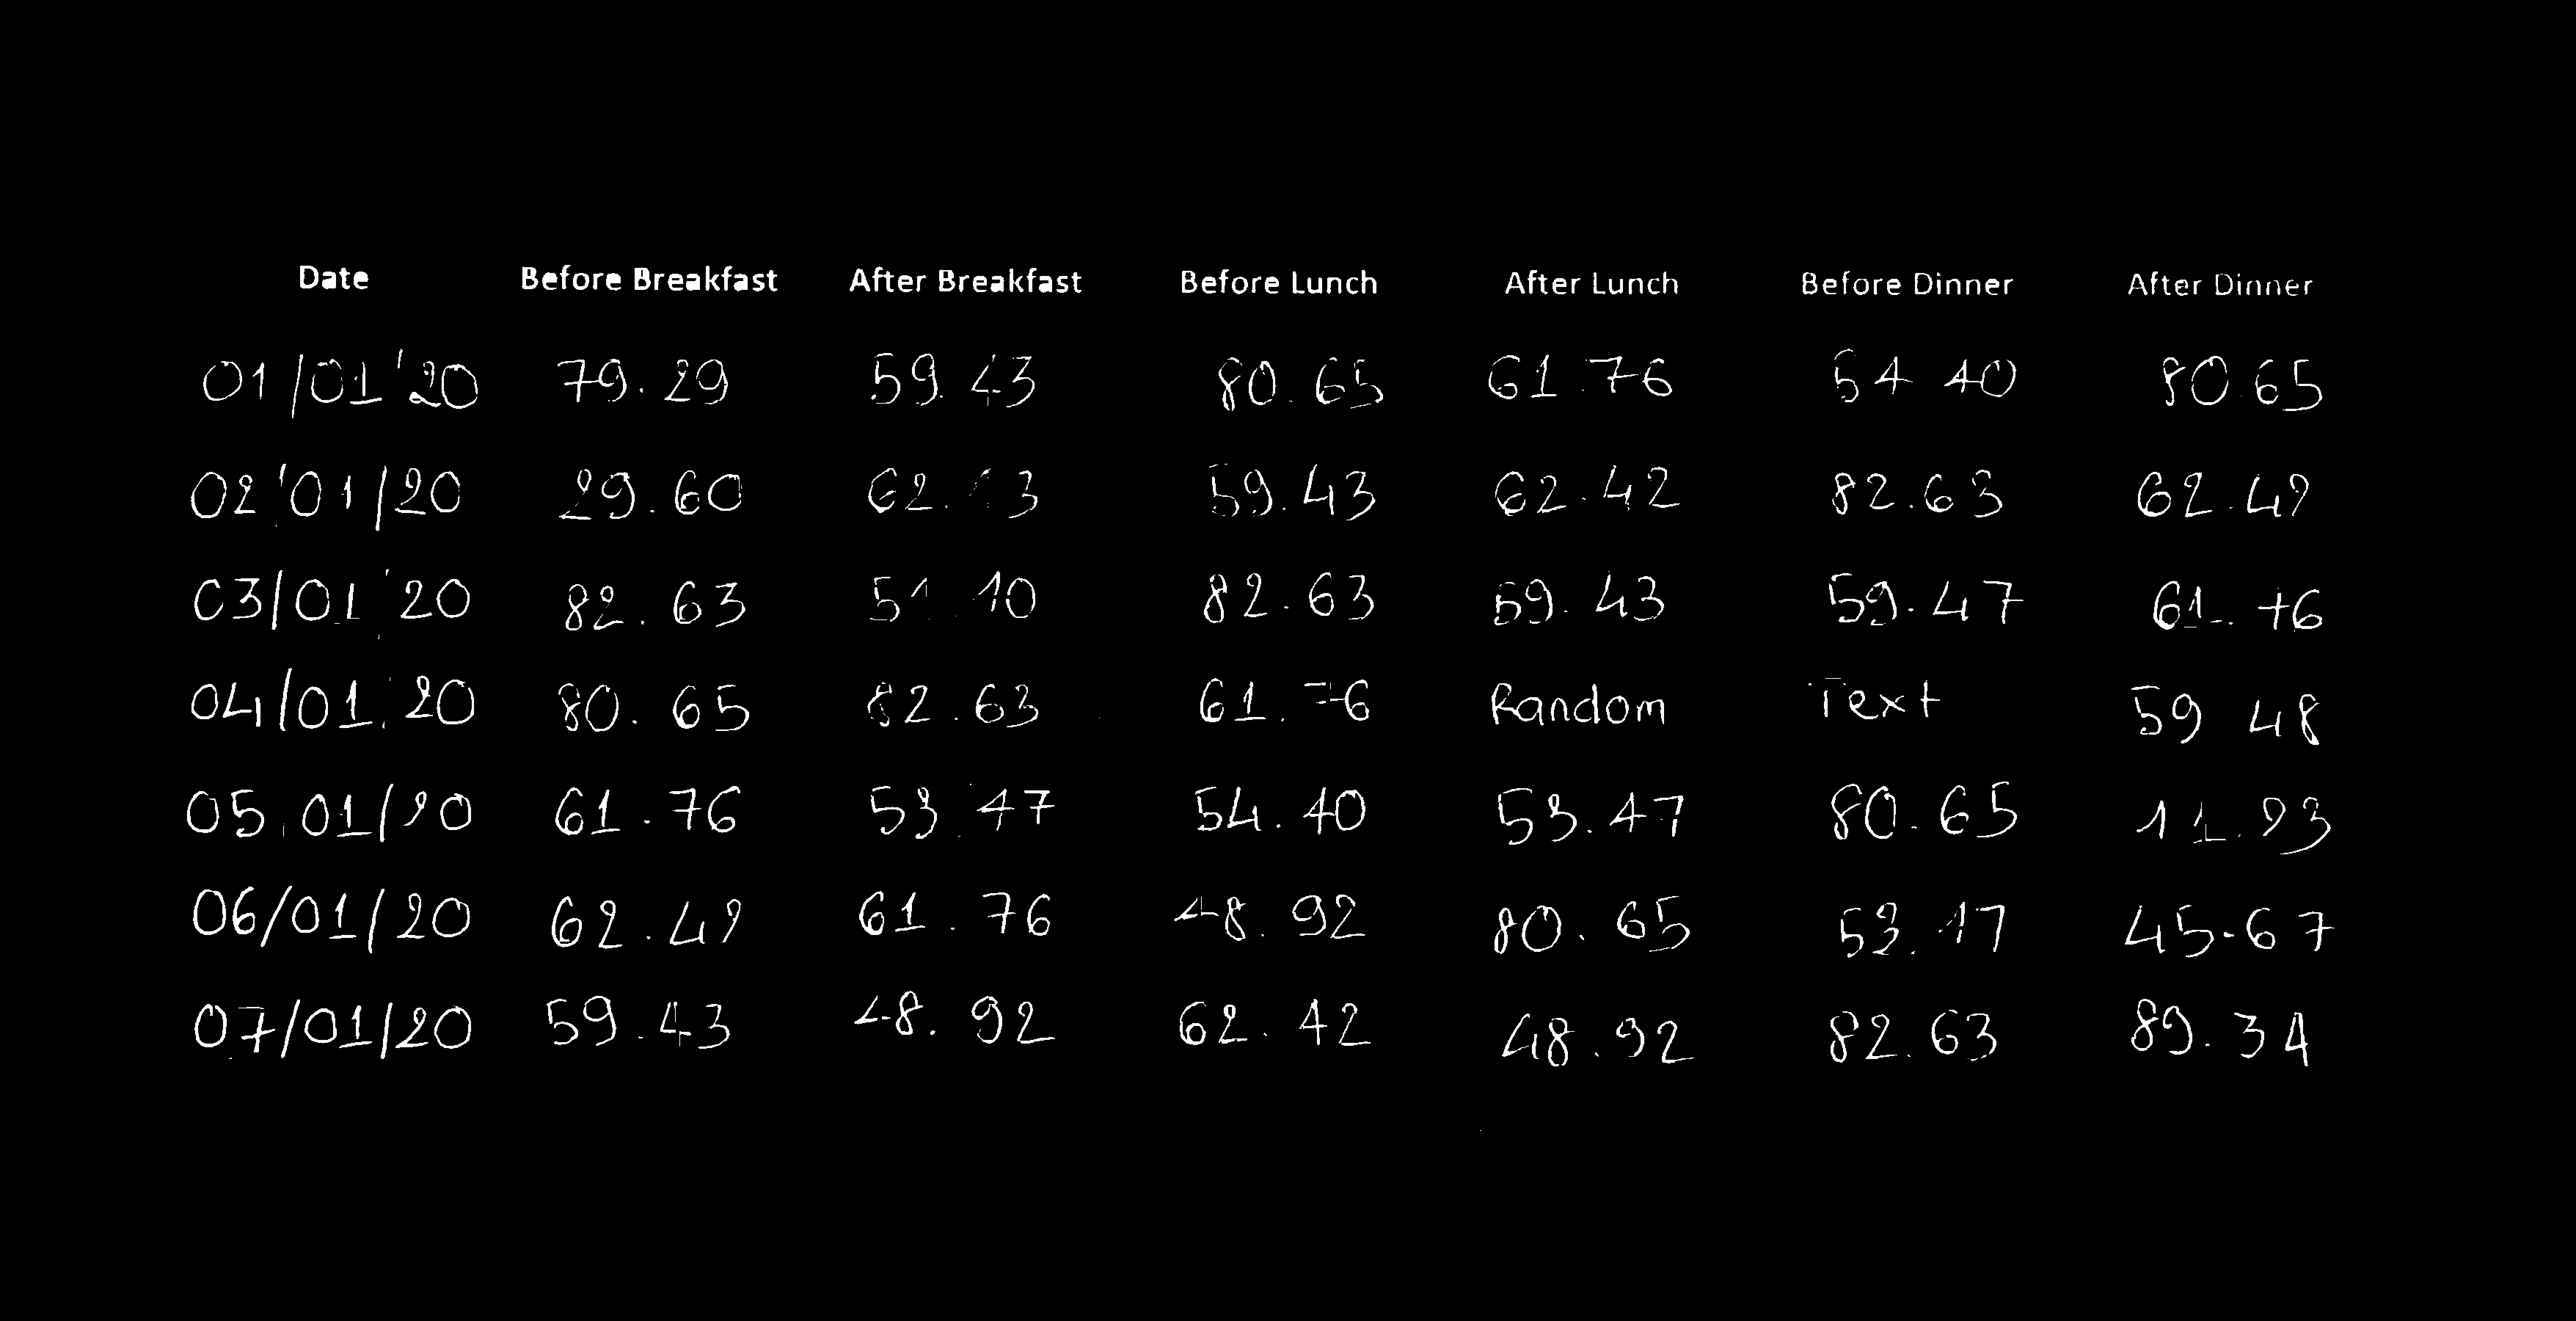 Date Before Breakfast After Breakfast Before Lunch After Lunch Before Dinner After Dinner
01/01'20 79.29 59.43 80.65 61.76 54 40 80.65
02'01/20 29.60 62. 59.43 62.42 82.63 62.42
03/01'20 82.63 82.63 59.43 59.47 61.76
04/01.20 80.65 82.63 61.76 Random Text 59 48
05.01/20 61.76 53.47 54.40 53.47 80.65 11.23
06/01/20 62.42 61.76 48.92 80.65 45.67
07/01/20 59.43 48.92 62.42 48.92 82.63 89.34